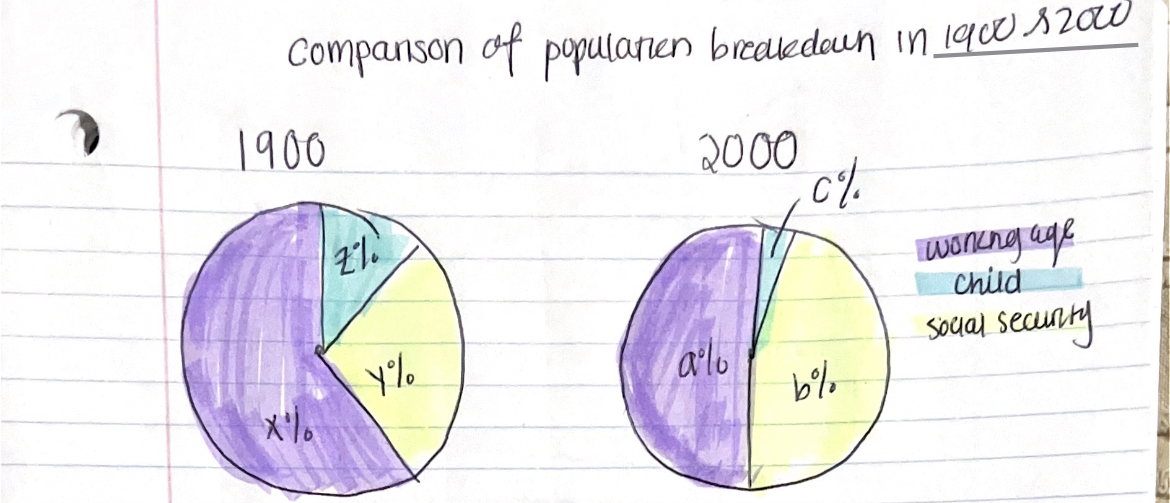 Comparison of population breakdown in 1900 & 2000
1900
2000
C%
Z%
working age
child
social security
Y%
a%
b%
X%